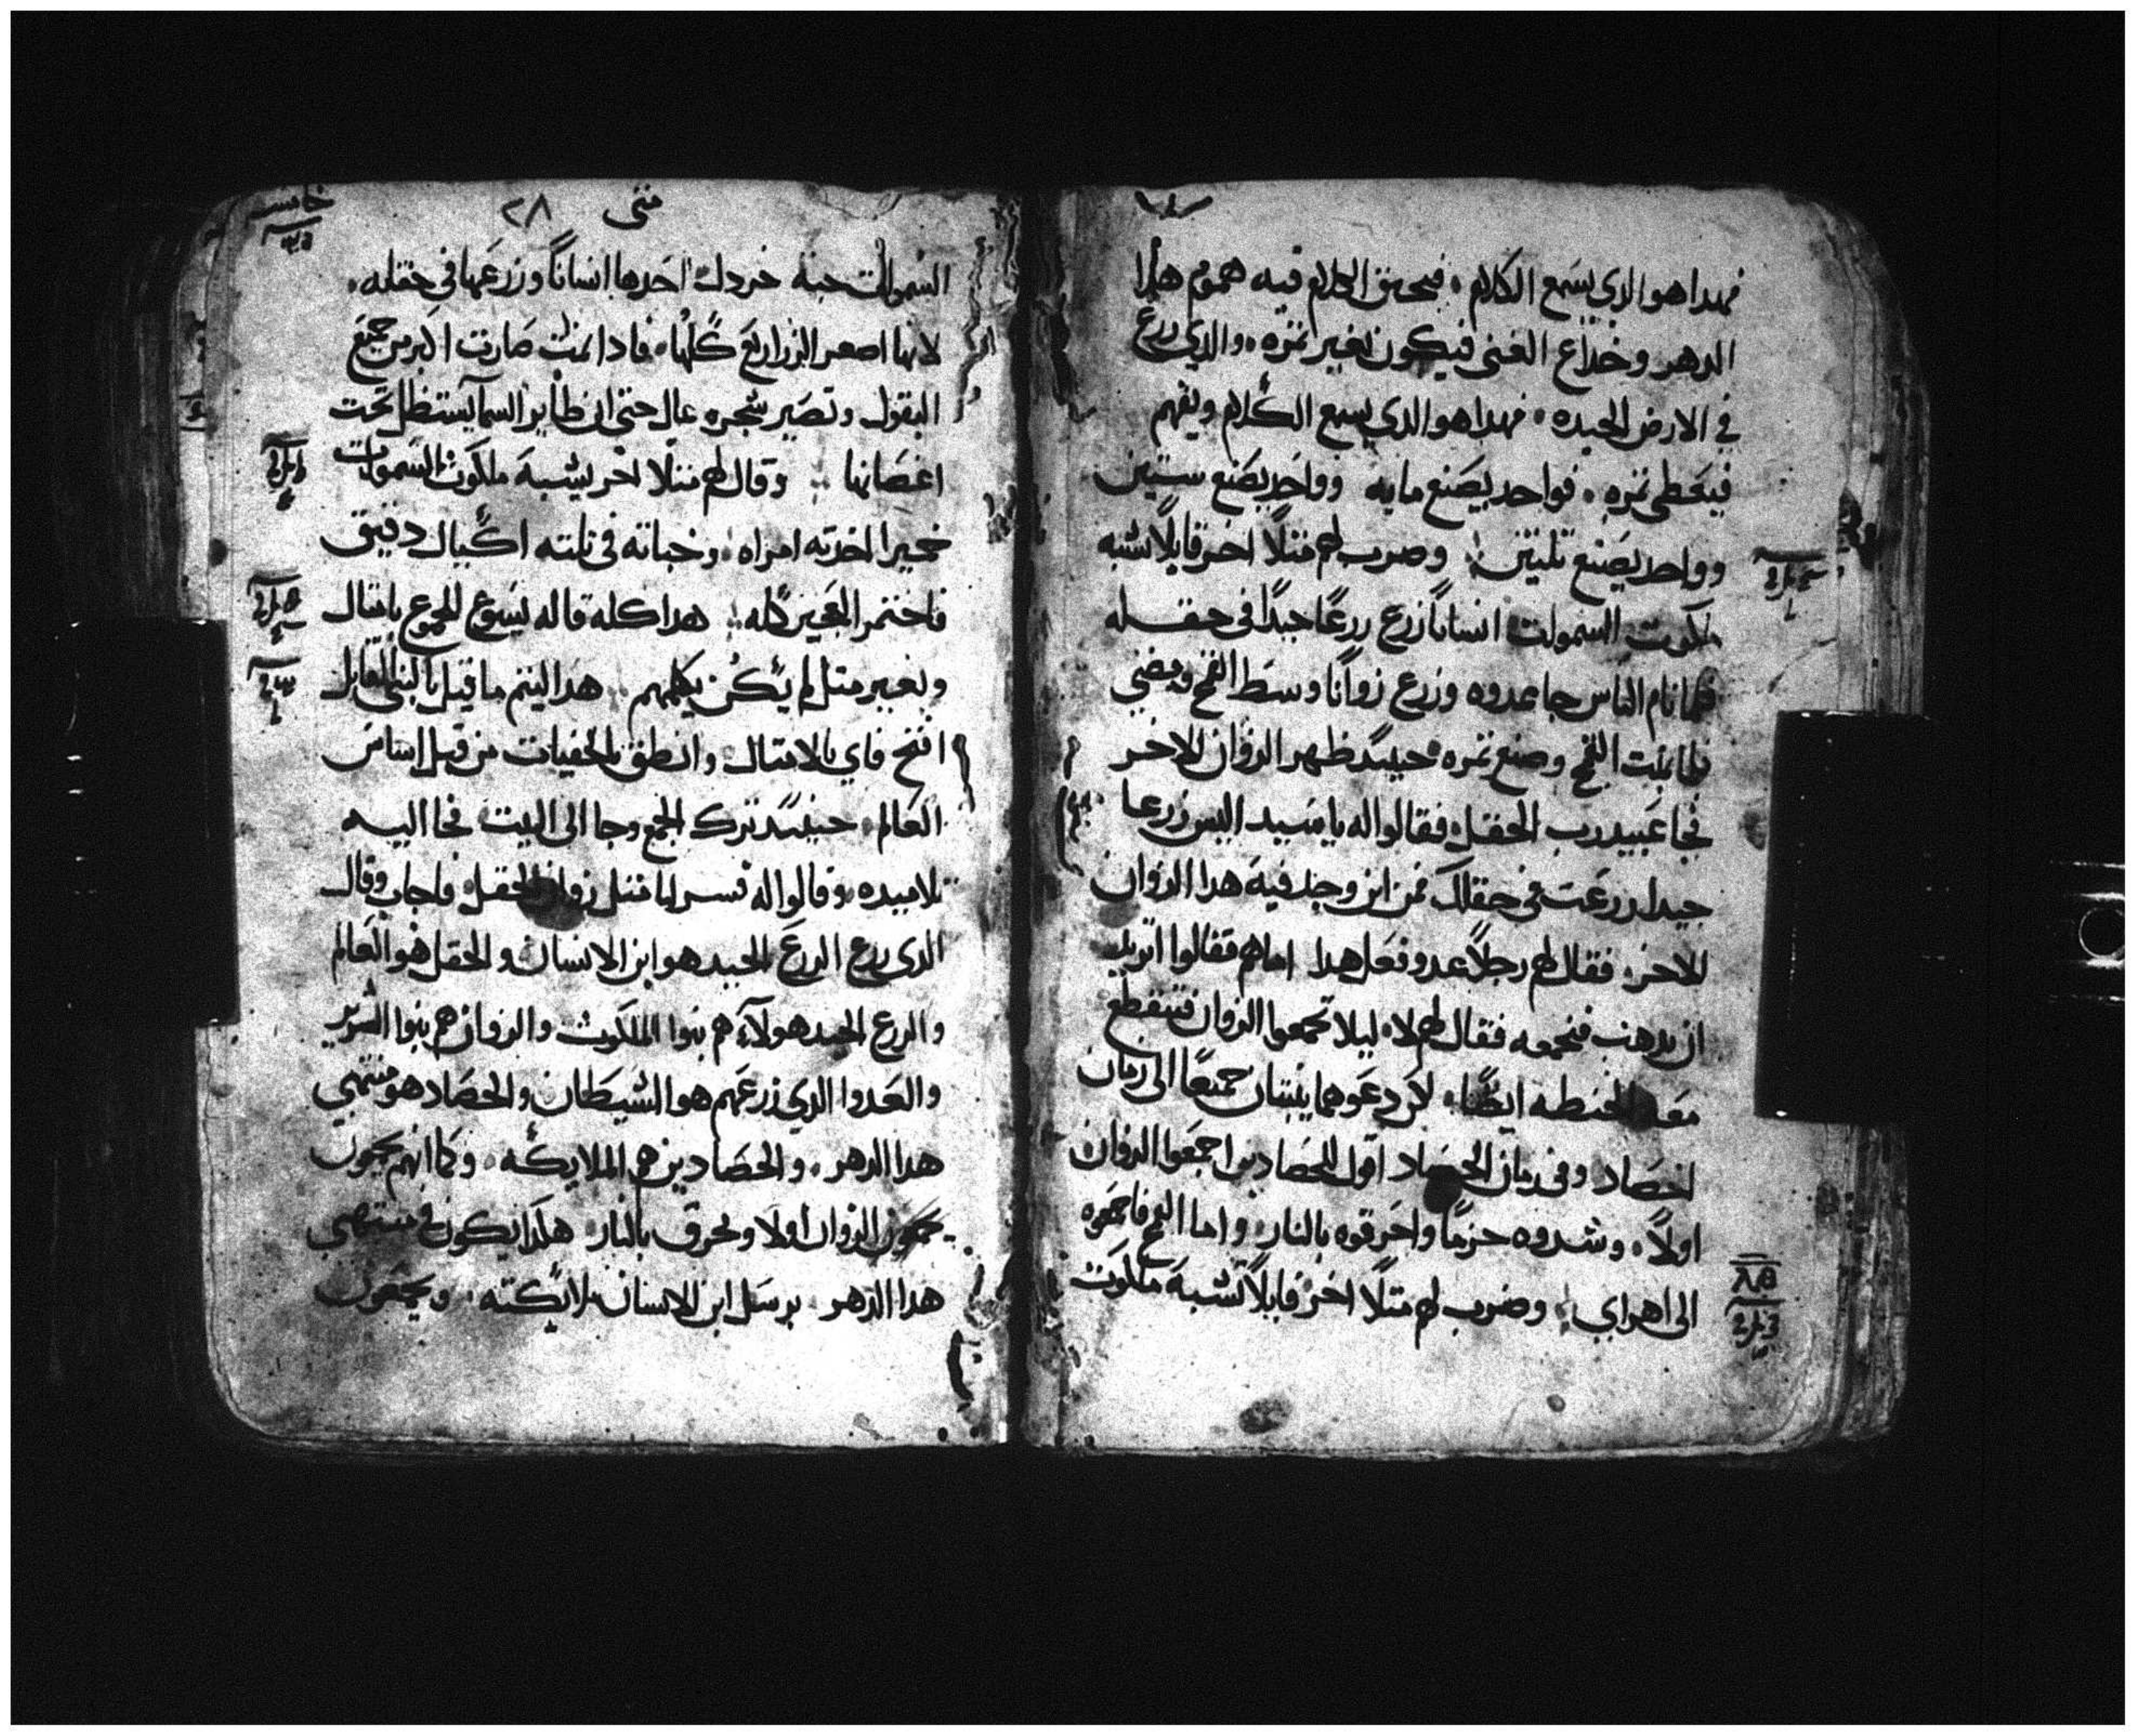 فهدا هو الدي يسمع الكلام ، فيخنق الكلام فيه هموم هدا
الدهر وخداع الغنى فيكون بغير تمره ، والدي زرع
في الارض الجيده ، فهدا هو الدي يسمع الكلام ويفهم
فيعطي تمره ، فواحد يصنع مايه وواحد يصنع ستين
وواحد يصنع تلتين وضرب لهم متلًا اخر قايلًا تشبه
ملكوت السموات انسانًا زرع زرعًا جيدًا في حقله
فلما نام الناس جا عدوه وزرع زوانًا وسط القمح ومضي
فلما نبت القمح وصنع تمره حينيد ظهر الزوان للاخر
فجا عبيد رب الحقل فقالوا له يا سيد اليس زرعا
جيدا زرعت في حقلك فمن اين وجد فيه هدا الزوان
للاخر فقال لهم رجلًا عدو فعل هدا اما هم فقالوا اتريد
ان ندهب فنجمعه فقال لهم لا ليلا تجمعوا الزوان فتنقطع
معه الحنطه ايضًا ، لكن دعوهما ينبتان جميعًا الى زمان
الحصاد وفي زمان الحصاد اقول للحصادين اجمعوا الزوان
اولًا ، وشدوه حزمًا واحرقوه بالنار واما القمح فاجمعوه
الى اهراي وضرب لهم متلًا اخر قايلًا تشبه ملكوت
متى ٢٨
السموات حبة خردل اخدها انسانًا وزرعها في حقله ،
لانها اصغر الزراريع كلها ، فادا نمت صارت اكبر من جميع
البقول وتصير شجره عال حتى ان طاير السما يستظل تحت
اغصانها وقال لهم متلًا اخر يشبه ملكوت السموات
خميرا اخدته امراه وخباته في تلته اكيال دقيق
فاختمر العجين كله هدا كله قاله يسوع للجموع بامتال
وبغير متل لم يكن يكلمهم هدا ليتم ما قيل بالنبي القايل
افتح فاي بالامتال وانطق بالخفيات من قبل اساس
العالم حينيد ترك الجمع وجا الى البيت فجا اليه
تلاميده وقالوا له فسر لنا متل زوان الحقل فاجاب وقال
الدي زرع الزرع الجيد هو ابن الانسان والحقل هو العالم
والزرع الجيد هولاء هم بنوا الملكوت والزوان هم بنوا الشرير
والعدوا الدي زرعهم هو الشيطان والحصاد هو منتهى
هدا الدهر ، والحصادين هم الملايكه ، وكما انهم يجمعون
يجمعون الزوان اولا ويحرق بالنار هكدا يكون في منتهى
هدا الدهر يرسل ابن الانسان ملايكته ويجمعون